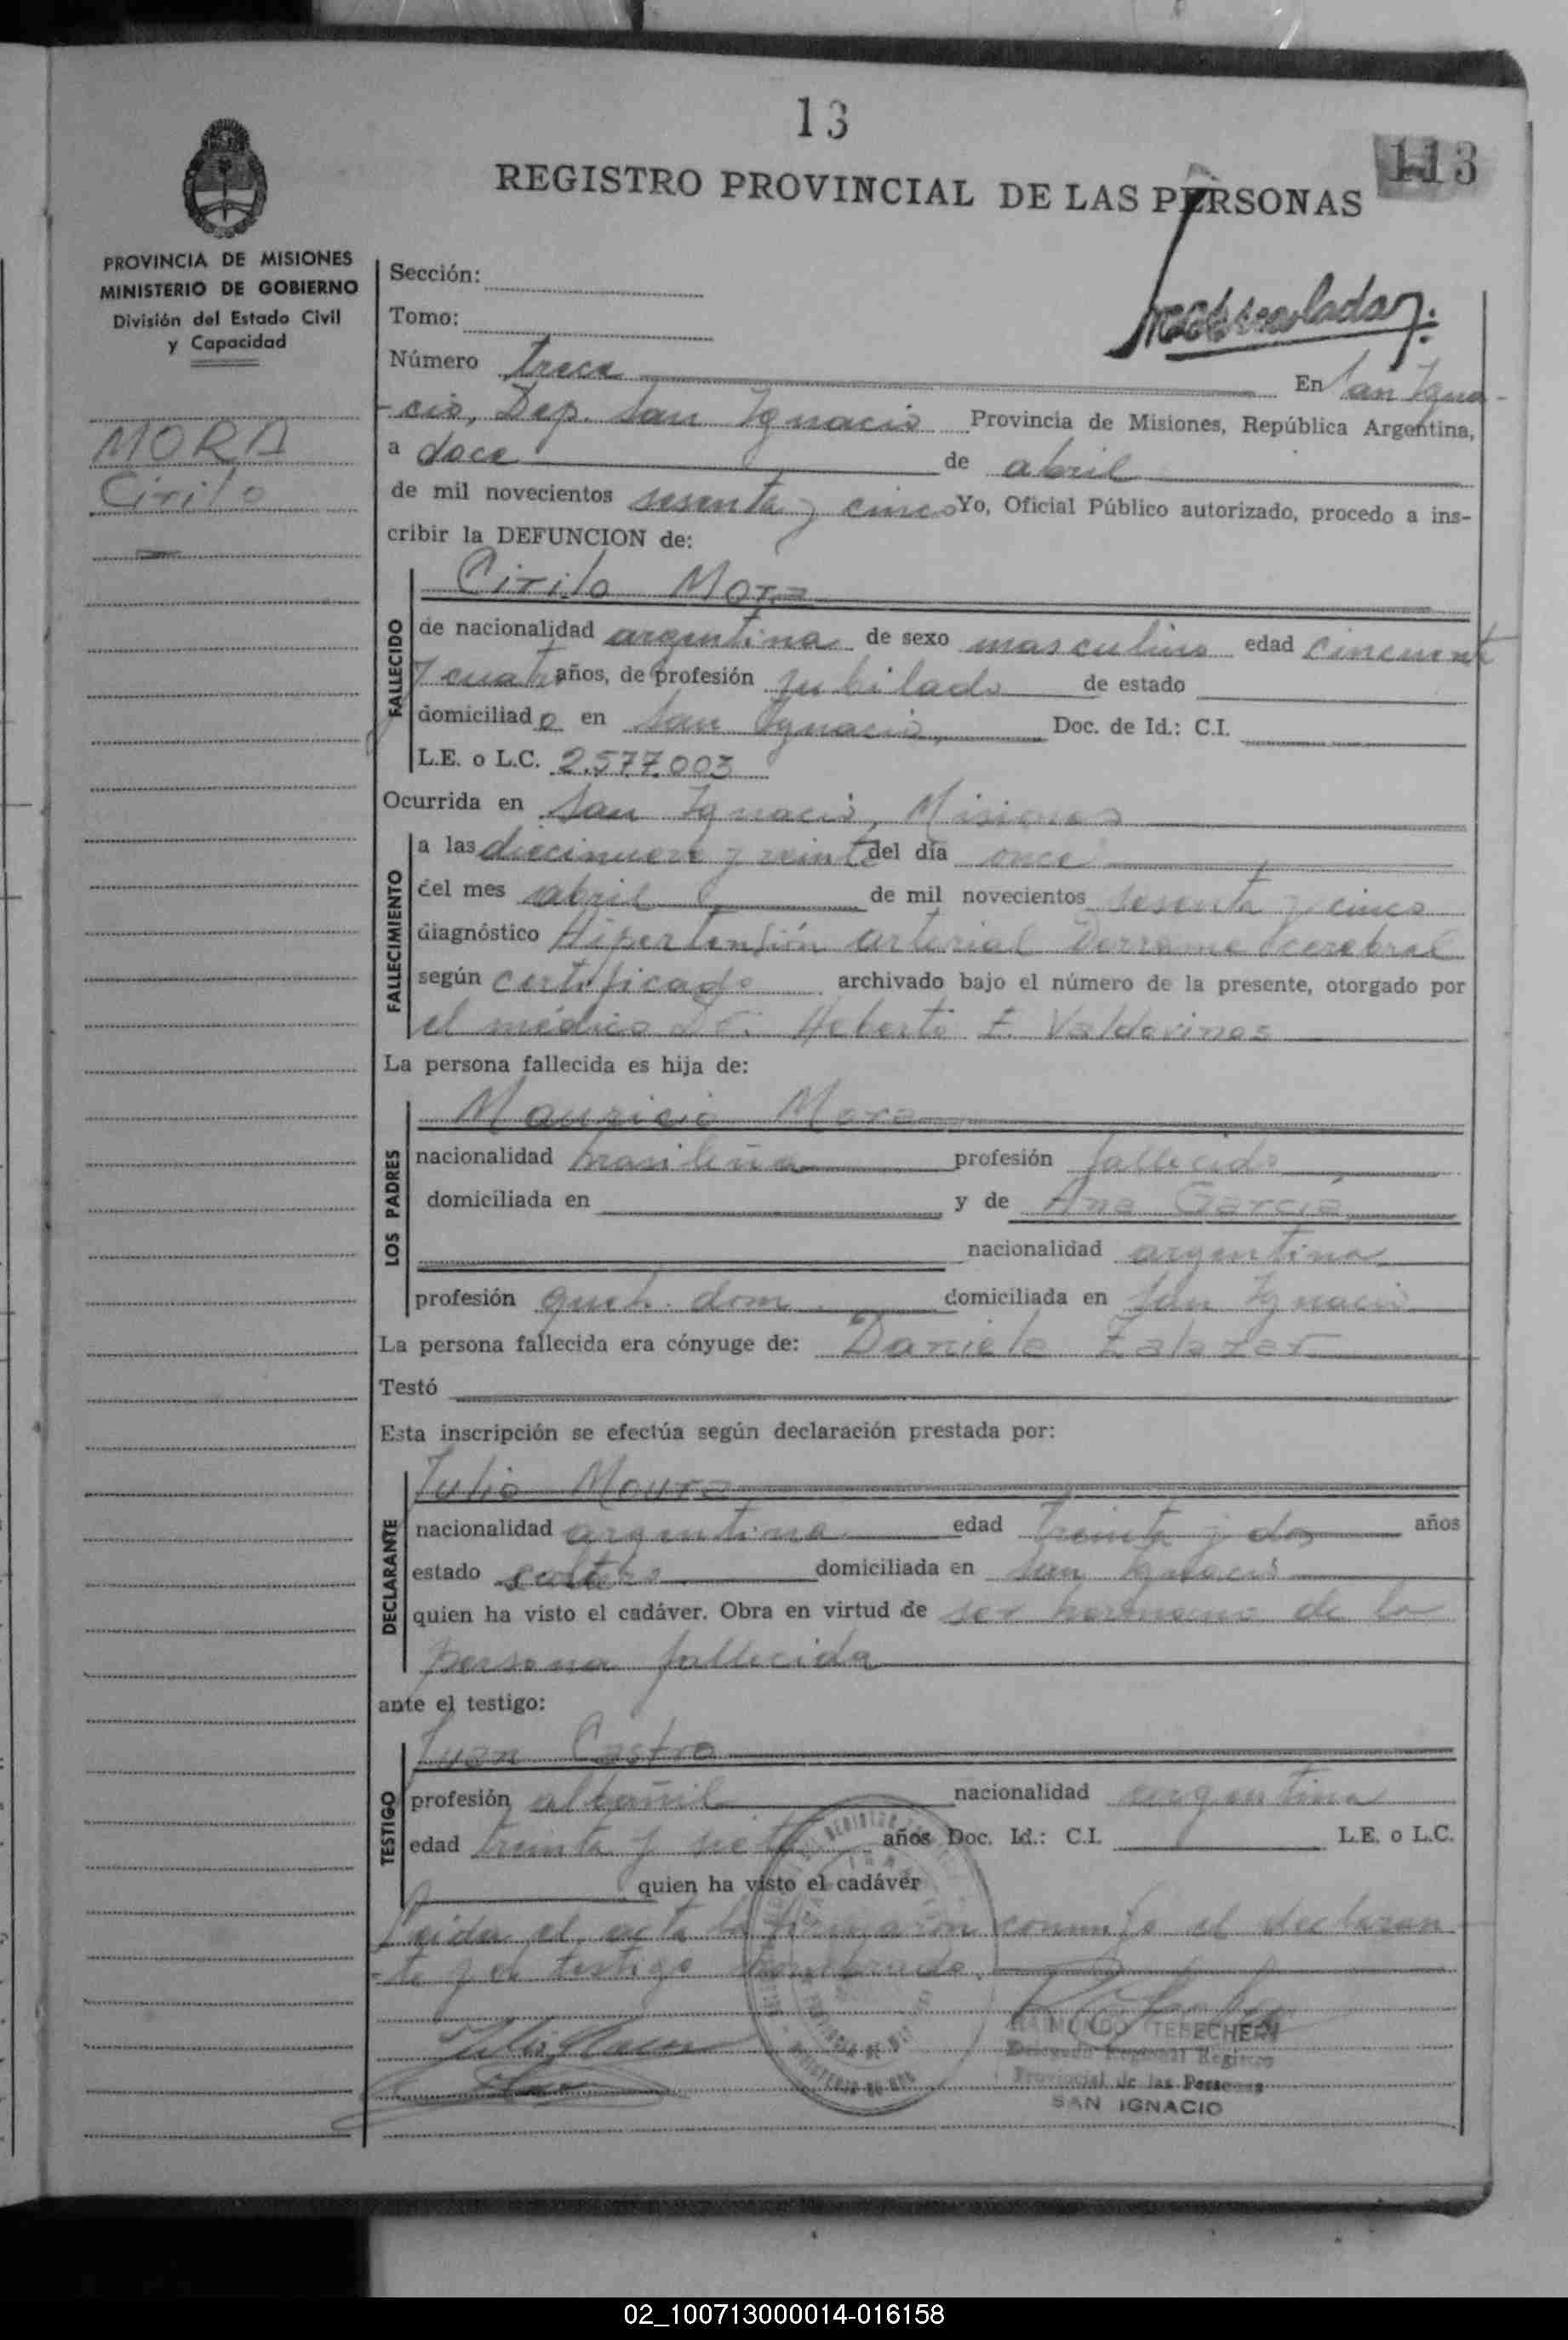 13
113
REGISTRO PROVINCIAL DE LAS PERSONAS
PROVINCIA DE MISIONES
MINISTERIO DE GOBIERNO
División del Estado Civil
y Capacidad
MORA
Cirilo
Sección:
Tomo:
Número trece En San Igna-
-cio, Dep. San Ignacio Provincia de Misiones, República Argentina,
a doce de abril
de mil novecientos sesenta y cinco Yo, Oficial Público autorizado, procedo a ins-
cribir la DEFUNCION de:
FALLECIDO
Cirilo Mora
de nacionalidad argentina de sexo masculino edad cincuenta
y cuatro años, de profesión jubilado de estado
domiciliado en San Ignacio, Doc. de Id.: C.I.
L.E. o L.C. 2.577.003
Ocurrida en San Ignacio, Misiones
FALLECIMIENTO
a las diecinueve y veinte del día once
del mes abril de mil novecientos sesenta y cinco
diagnóstico Hipertensión arterial Derrame cerebral
según certificado archivado bajo el número de la presente, otorgado por
el médico Dr. Heberto E. Valdovinos
La persona fallecida es hija de:
LOS PADRES
Mauricio Mora
nacionalidad brasileña profesión fallecido
domiciliada en y de Ana García
nacionalidad argentina
profesión queh. dom. domiciliada en San Ignacio
La persona fallecida era cónyuge de: Daniela Zalazar
Testó
Esta inscripción se efectúa según declaración prestada por:
DECLARANTE
Julio Moura
nacionalidad argentina edad treinta y dos años
estado soltero domiciliada en San Ignacio
quien ha visto el cadáver. Obra en virtud de ser hermano de la
persona fallecida
ante el testigo:
TESTIGO
Juan Castro
profesión albañil nacionalidad argentina
edad treinta y siete años Doc. Id.: C.I. L.E. o L.C.
quien ha visto el cadáver
Leida el acta la firmaron conmigo el declaran
-te y el testigo nombrado.
RAIMUNDO TEBECHERI
Delegado Regional Registro
Provincial de las Personas
SAN IGNACIO
02_100713000014-016158